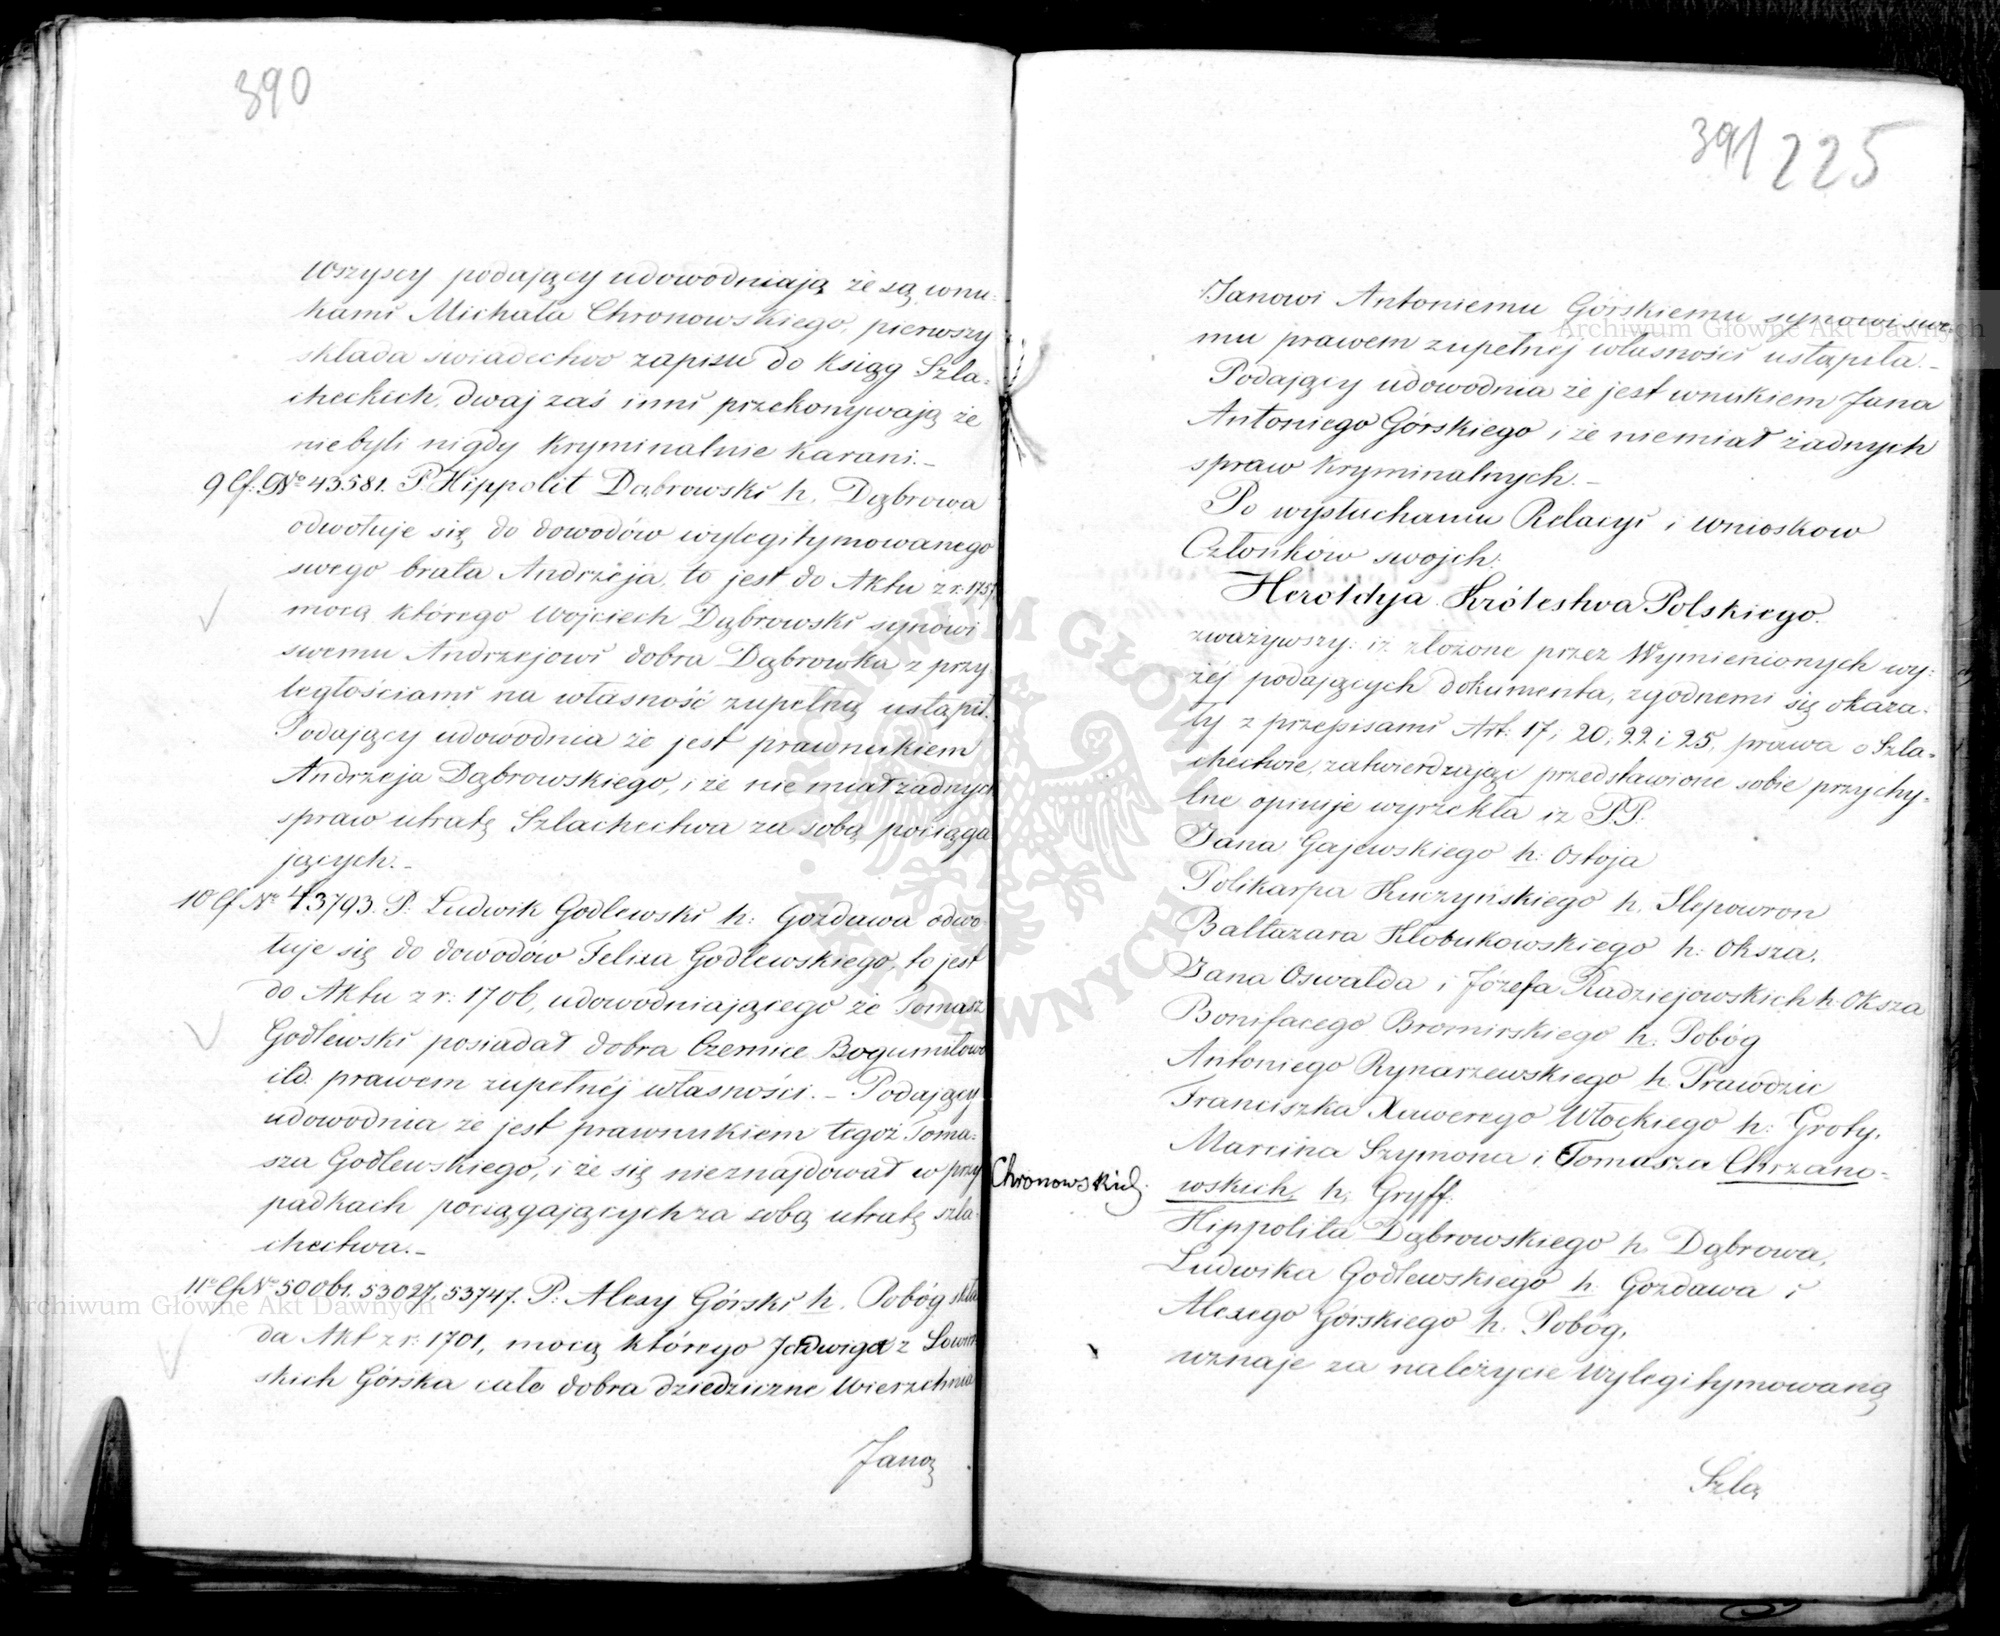 390
Wszyscy podający udowodniają że są wnu-
kami Michała Chronowskiego, pierwszy
składa świadectwo zapisu do Ksiąg Szla-
checkich, dwaj zaś inni przekonywają że
niebyli nigdy kryminalnie karani.-
9 lf: No 43581. P. Hippolit Dąbrowski h. Dąbrowa
odwołuje się do dowodów wylegitymowanego
swego brata Andrzeja, to jest do Aktu z r: 1757
mocą którego Wojciech Dąbrowski synowi
swemu Andrzejowi dobra Dąbrowka z przy
ległościami na własność zupełną ustąpił.
Podający udowodnia że jest prawnukiem
Andrzeja Dąbrowskiego, i że nie miał żadnych
spraw utratę Szlachectwa za sobą pociąga
jących.-
10 lf No 43793. P: Ludwik Godlewski h: Gozdawa odwo
łuje się do dowodów Felixa Godlewskiego, to jest
do Aktu z r: 1706, udowodniającego że Tomasz
Godlewski posiadał dobra Czernice Bogumiłowo
itd. prawem zupełnéj własności.- Podający
udowodnia że jest prawnukiem tegoż Toma-
sza Godlewskiego, i że się nieznajdował w przy
padkach pociągających za sobą utratę szla
chectwa.-
11o lf No 50061. 53027. 53747. P: Alexy Górski h. Pobóg skła
da Akt z r: 1701, mocą którego Jadwiga z
skich Górska całe dobra dziedziczne Wierzchnia
Janoz
391 225
Janowi Antoniemu Górskiemu synowi swe-
mu prawem zupełnéj własności ustąpiła.-
Podający udowodnia że jest wnukiem Jana
Antoniego Górskiego i że niemiał żadnych
spraw kryminalnych.-
Po wysłuchaniu Relacyi i wniosków
Członków swojch:
Heroldya Królestwa Polskiego.
zważywszy: iż złożone przez Wymienionych wy-
żéj podających dokumenta, zgodnemi się okaza-
ły z przepisami Art: 17, 20, 22 i 25, prawa o Szla-
chectwie, zatwierdzając przedstawione sobie przychy-
lne opinije wyrzekła iż P.P.
Jana Gajewskiego h: Ostoja
Polikarpa Kuczyńskiego h. Slepowron
Baltazara Kłobukowskiego h: Oksza,
Jana Oswalda i Józefa Radziejowskich h. Oksza
Bonifacego Bromirskiego h. Pobóg
Antoniego Rynarzewskiego h Prawdzic
Franciszka Xawerego Włockiego h: Groty,
Marcina Szymona i Tomasza Chrzano-
Chronowskich.
wskich, h; Gryff.
Hippolita Dąbrowskiego h. Dąbrowa,
Ludwika Godlewskiego h: Gozdawa i
Alexego Górskiego h. Pobóg,
uznaje za należycie Wylegitymowaną
Szla,
Archiwum Główne Akt Dawnych
Archiwum Główne Akt Dawnych
ARCHIWUM GŁÓWNE AKT DAWNYCH